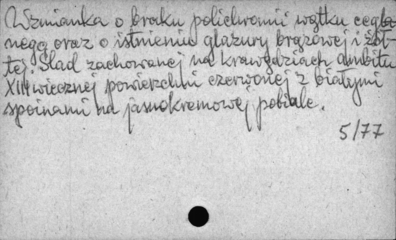 Wzmianka o braku polichromii wątku cegla
nego oraz o istnieniu glazury brązowej i żół-
tej. Ślad zachowanej na krawędziach ambitu
XIII wiecznej powierzchni czerwonej z białymi
spoinami na jasnokremowej pobiale.
5/77